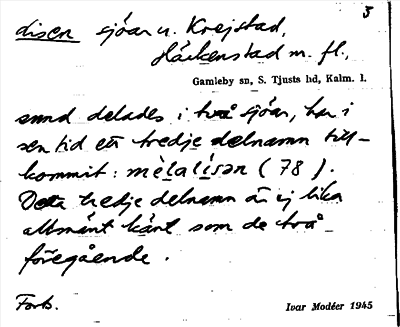 3
disen sjöar v. Krejstad,
Häckenstad m. fl.,
Gamleby sn, S. Tjusts hd, Kalm. l.
sund delades i två sjöar, har i
sen tid ett tredje delnamn till-
kommit: mèlalísən (78).
Detta tredje delnamn är ej lika
allmänt känt som de två
föregående.
Forts.
Ivar Modéer 1945